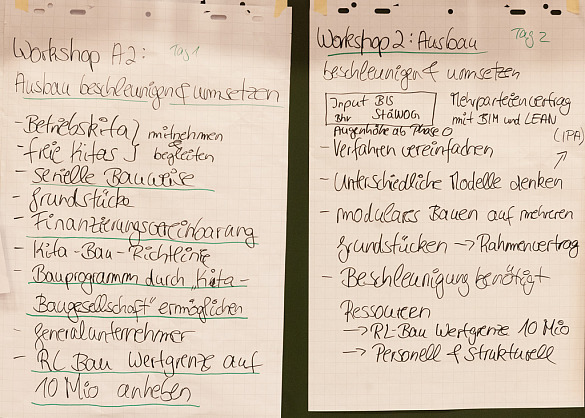 Workshop A2: Tag 1
Ausbau beschleunigen & umsetzen
- Betriebskita } mitnehmen &
- freie Kitas } begleiten
- serielle Bauweise
- Grundstücke
- Finanzierungsvereinbarung
- Kita-Bau-Richtlinie
- Bauprogramm durch "Kita-
Baugesellschaft" ermöglichen
- Generalunternehmer
- RL Bau Wertgrenze auf
10 Mio anheben
Workshop 2: Ausbau Tag 2
beschleunigen & umsetzen
Input BIS
Bhr StäWOG
Mehrparteienvertrag
mit BIM und LEAN
(IPA)
Augenhöhe ab Phase 0
- Verfahren vereinfachen
- Unterschiedliche Modelle denken
- modulares Bauen auf mehreren
Grundstücken → Rahmenvertrag
- Beschleunigung benötigt
Ressourcen
→ RL-Bau Wertgrenze 10 Mio
→ Personell & Strukturell